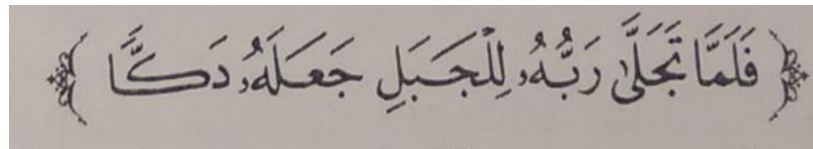 ﴿ فَلَمَّا تَجَلَّىٰ رَبُّهُۥ لِلْجَبَلِ جَعَلَهُۥ دَكًّا ﴾